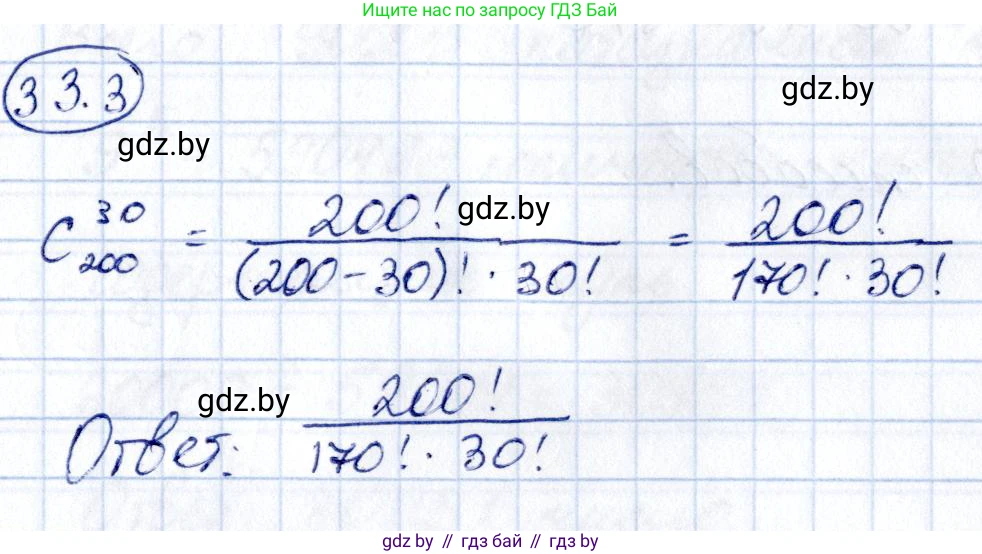 Ищите нас по запросу ГДЗ Бай
33.3
gdz.by
gdz.by
C_{200}^{30} = \frac{200!}{(200-30)! \cdot 30!} = \frac{200!}{170! \cdot 30!}
gdz.by
gdz.by
Ответ: \frac{200!}{170! \cdot 30!}
gdz.by // гдз бай // gdz.by